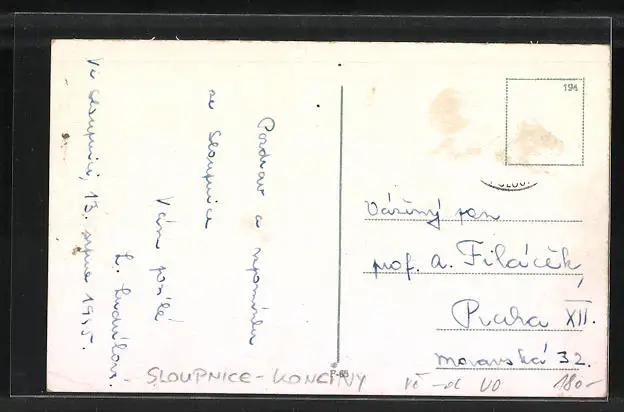 Pozdrav a vzpomínku
ze Sloupnice
Vám posílá
Ve Sloupnici, 13. srpna 1945.
194
Vážený pan
prof. A. Filáček,
Praha XII.
Moravská 32.
P-65
- SLOUPNICE - KONČINY
VO 180-